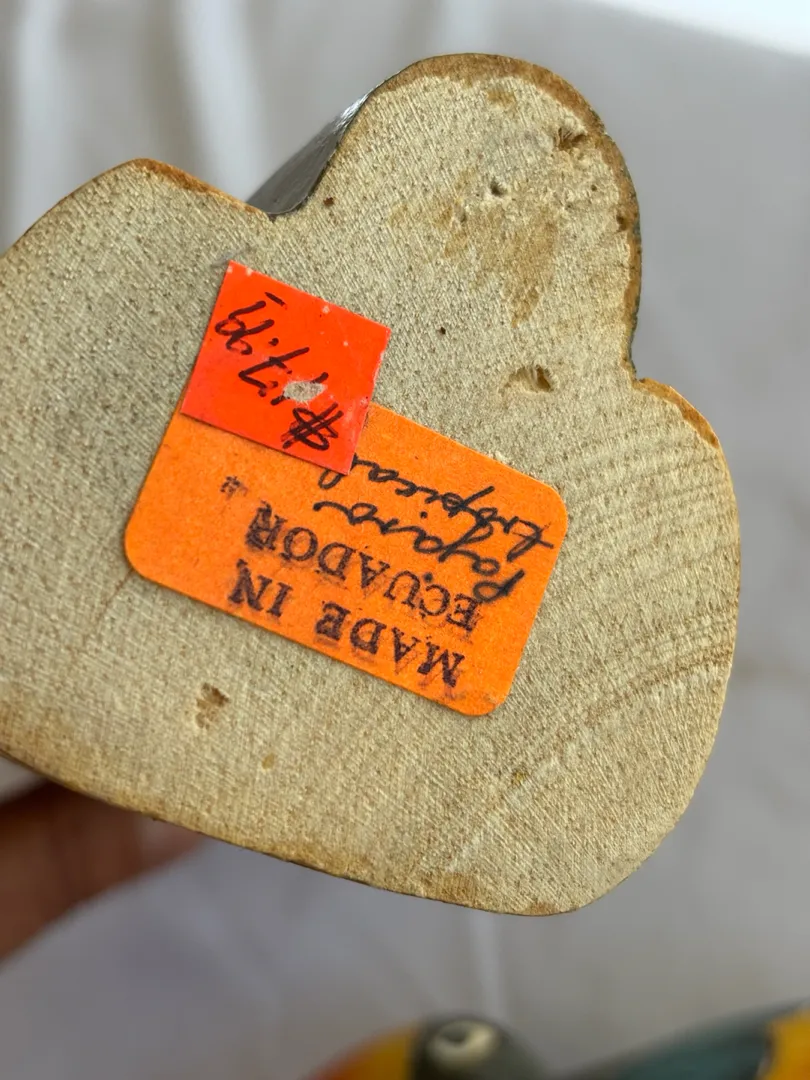 MADE IN
ECUADOR
Pajaro
tropical
$17.99